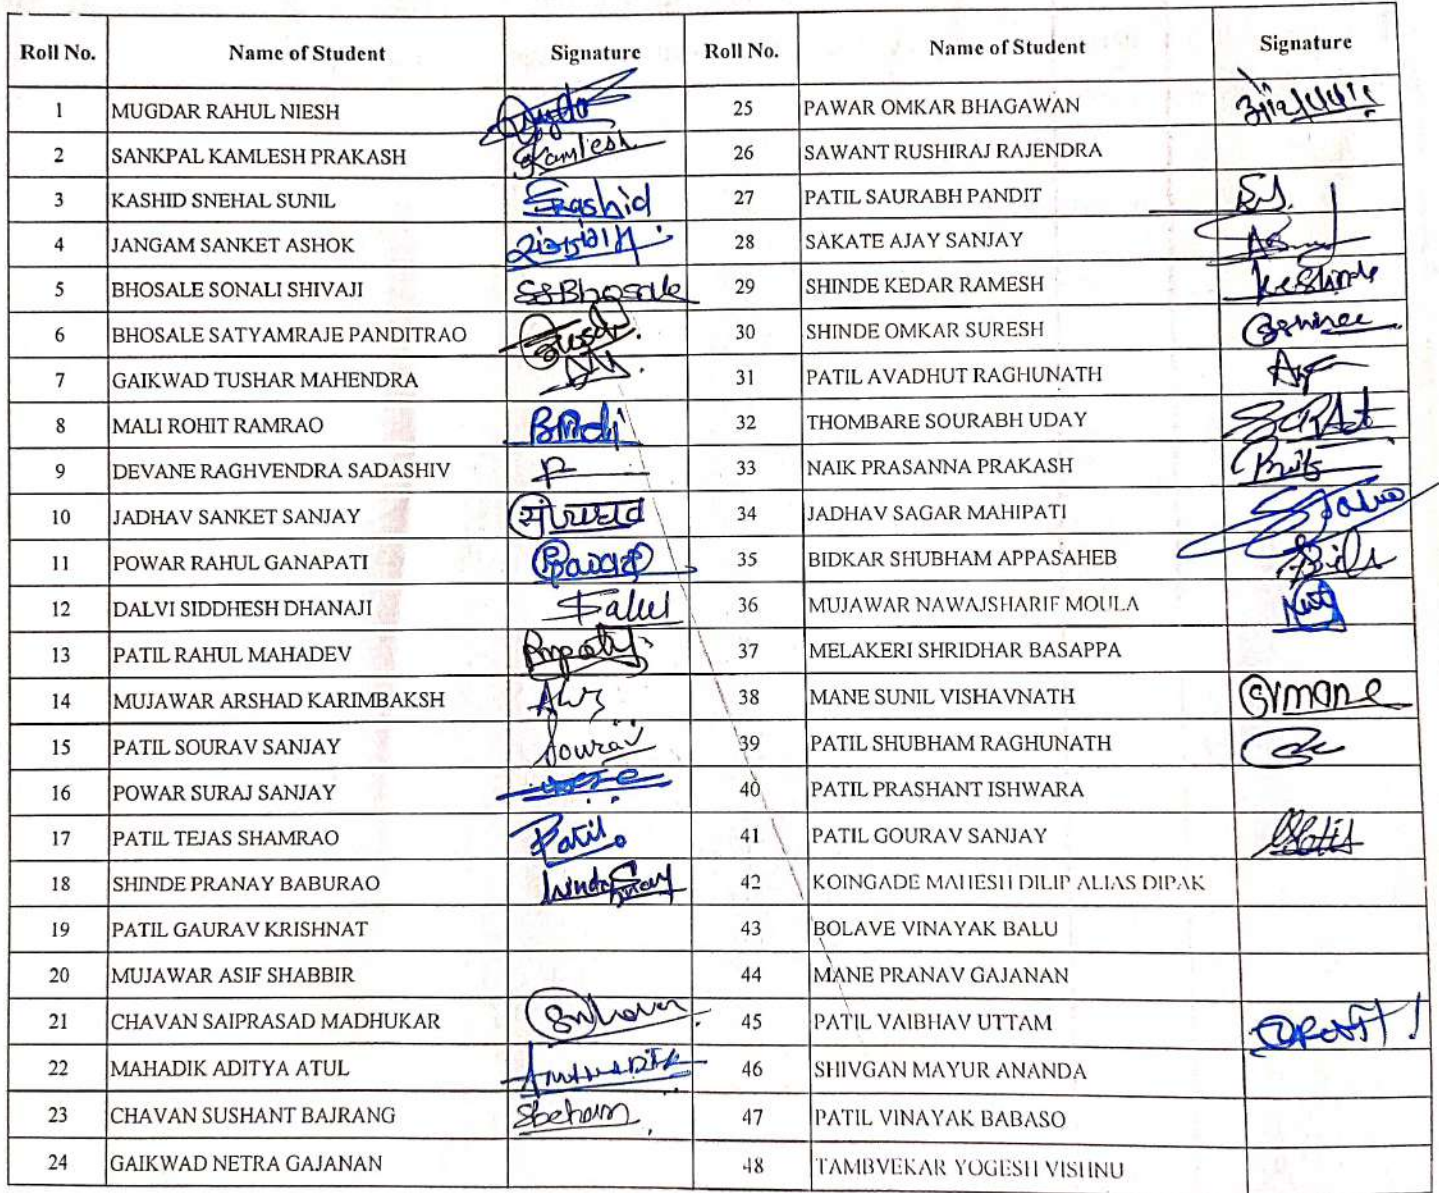 Roll No. Name of Student Signature Roll No. Name of Student Signature
1 MUGDAR RAHUL NIESH 25 PAWAR OMKAR BHAGAWAN
2 SANKPAL KAMLESH PRAKASH Kamlesh 26 SAWANT RUSHIRAJ RAJENDRA
3 KASHID SNEHAL SUNIL Skashid 27 PATIL SAURABH PANDIT
4 JANGAM SANKET ASHOK 28 SAKATE AJAY SANJAY
5 BHOSALE SONALI SHIVAJI SSBhosale 29 SHINDE KEDAR RAMESH
6 BHOSALE SATYAMRAJE PANDITRAO 30 SHINDE OMKAR SURESH
7 GAIKWAD TUSHAR MAHENDRA 31 PATIL AVADHUT RAGHUNATH
8 MALI ROHIT RAMRAO 32 THOMBARE SOURABH UDAY
9 DEVANE RAGHVENDRA SADASHIV 33 NAIK PRASANNA PRAKASH
10 JADHAV SANKET SANJAY 34 JADHAV SAGAR MAHIPATI
11 POWAR RAHUL GANAPATI 35 BIDKAR SHUBHAM APPASAHEB
12 DALVI SIDDHESH DHANAJI 36 MUJAWAR NAWAJSHARIF MOULA
13 PATIL RAHUL MAHADEV Rmpatil 37 MELAKERI SHRIDHAR BASAPPA
14 MUJAWAR ARSHAD KARIMBAKSH 38 MANE SUNIL VISHAVNATH SVmane
15 PATIL SOURAV SANJAY Sourav 39 PATIL SHUBHAM RAGHUNATH
16 POWAR SURAJ SANJAY 40 PATIL PRASHANT ISHWARA
17 PATIL TEJAS SHAMRAO Patil. 41 PATIL GOURAV SANJAY
18 SHINDE PRANAY BABURAO 42 KOINGADE MAHESH DILIP ALIAS DIPAK
19 PATIL GAURAV KRISHNAT 43 BOLAVE VINAYAK BALU
20 MUJAWAR ASIF SHABBIR 44 MANE PRANAV GAJANAN
21 CHAVAN SAIPRASAD MADHUKAR 45 PATIL VAIBHAV UTTAM
22 MAHADIK ADITYA ATUL 46 SHIVGAN MAYUR ANANDA
23 CHAVAN SUSHANT BAJRANG 47 PATIL VINAYAK BABASO
24 GAIKWAD NETRA GAJANAN 48 TAMBVEKAR YOGESH VISHNU